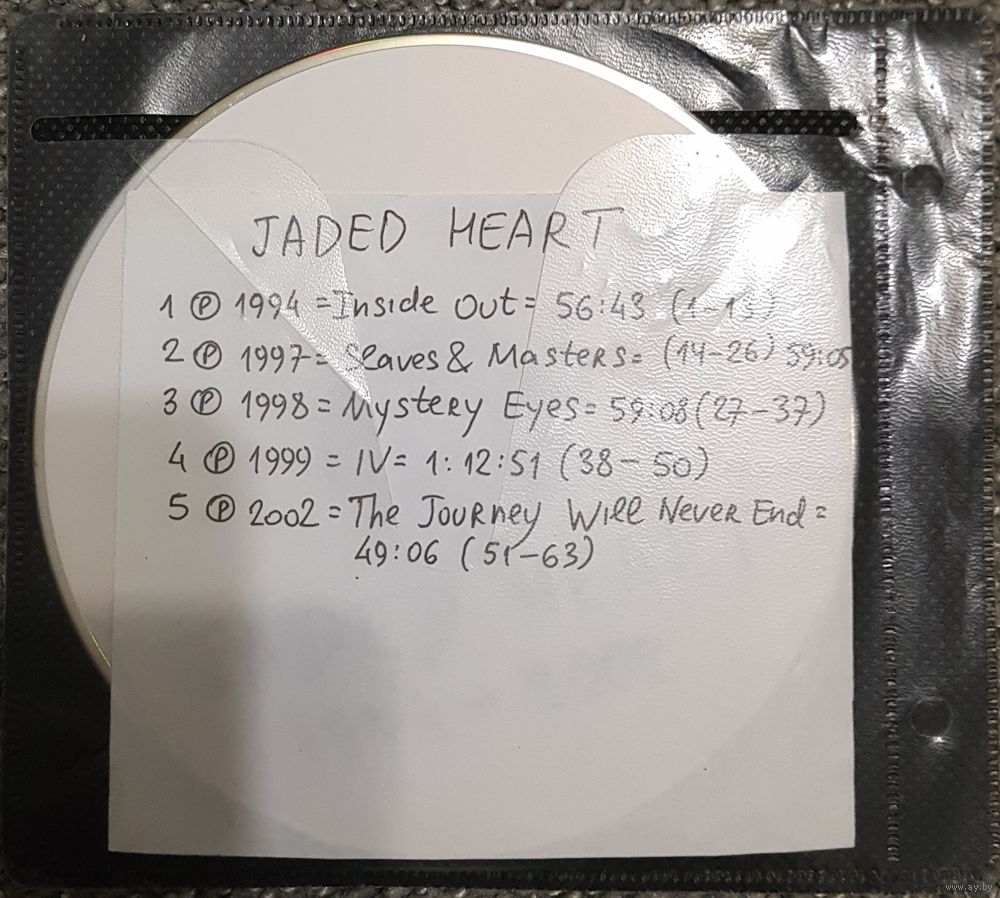 JADED HEART
1 Ⓟ 1994 = Inside Out = 56:43 (1-13)
2 Ⓟ 1997 = Slaves & Masters = (14-26) 59:05
3 Ⓟ 1998 = Mystery Eyes = 59:08 (27-37)
4 Ⓟ 1999 = IV = 1:12:51 (38-50)
5 Ⓟ 2002 = The Journey Will Never End =
49:06 (51-63)
www.ay.by